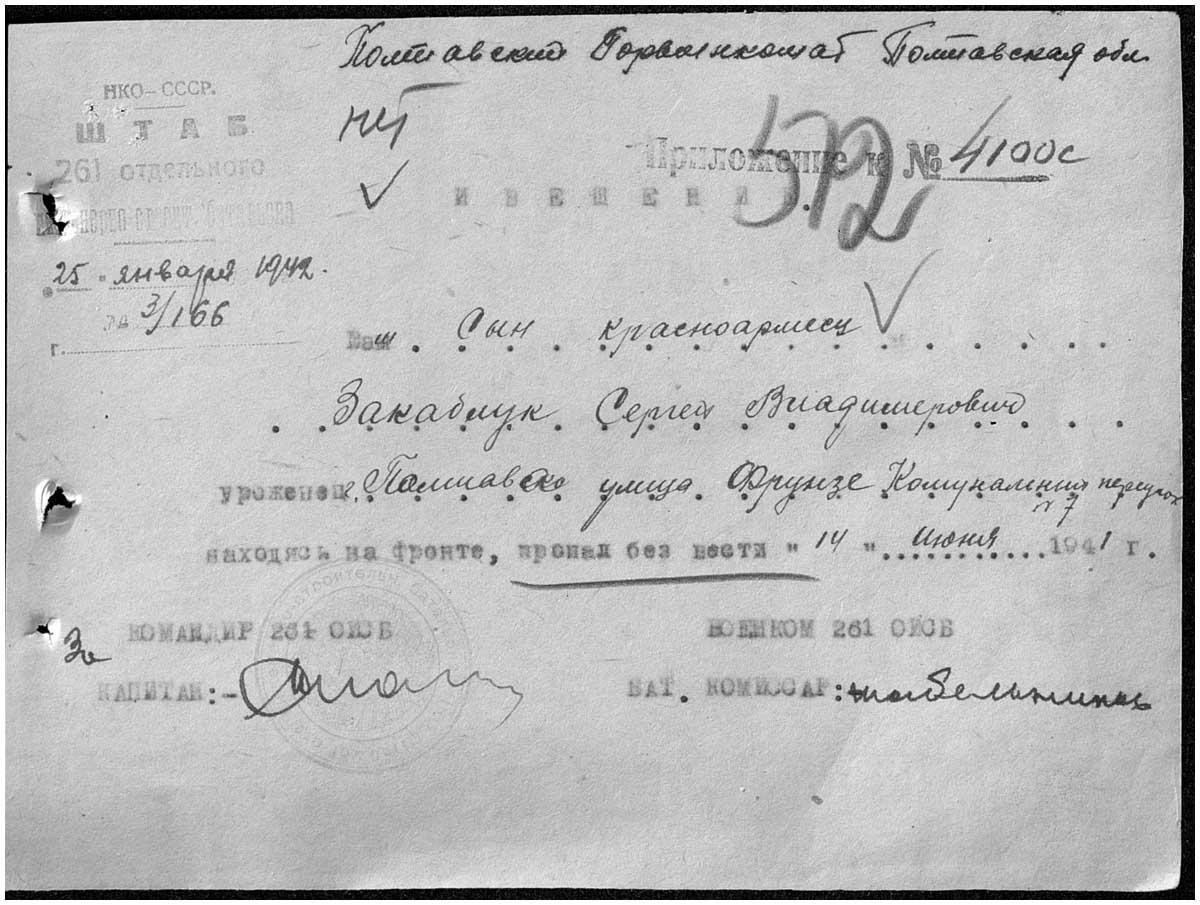 Полтавский Горвоенкомат Полтавская обл.
НКО-СССР.
ШТАБ
261 отдельного
25 января 1942.
№ 3/166
г.
Приложение к № 4100с
572
ИВЕЩЕНИЕ.
Ваш Сын красноармеец
Закаблук Сергей Владимерович
уроженец г. улица Фрунзе
№ 7
находясь на фронте, пропал без вести "14" июня 1941 г.
КОМАНДИР 261 ОИСБ
За
КАПИТАН:-
ВОЕНКОМ 261 ОИСБ
БАТ. КОМИССАР: